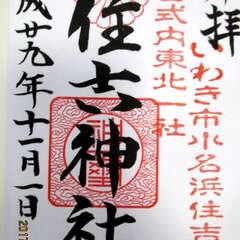 拝
いわき市小名浜住吉
式内東北一社
住吉神社
成廿九年十一月一日